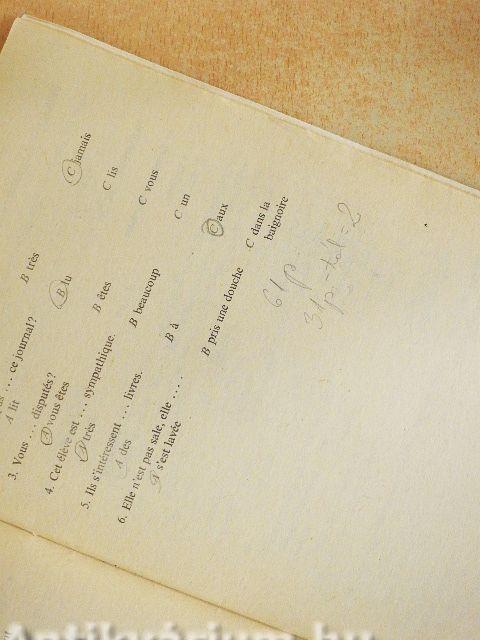 B très C jamais
... ce journal?
A lit B lu C lis
3. Vous ... disputés?
A vous êtes B êtes C vous
4. Cet élève est ... sympathique.
A très B beaucoup C un
5. Ils s'intéressent ... livres.
A des B à C aux
6. Elle n'est pas sale, elle ....
A s'est lavée B pris une douche C dans la
baignoire
61 p.
31 p. -tól = 2
Antikvárium.hu